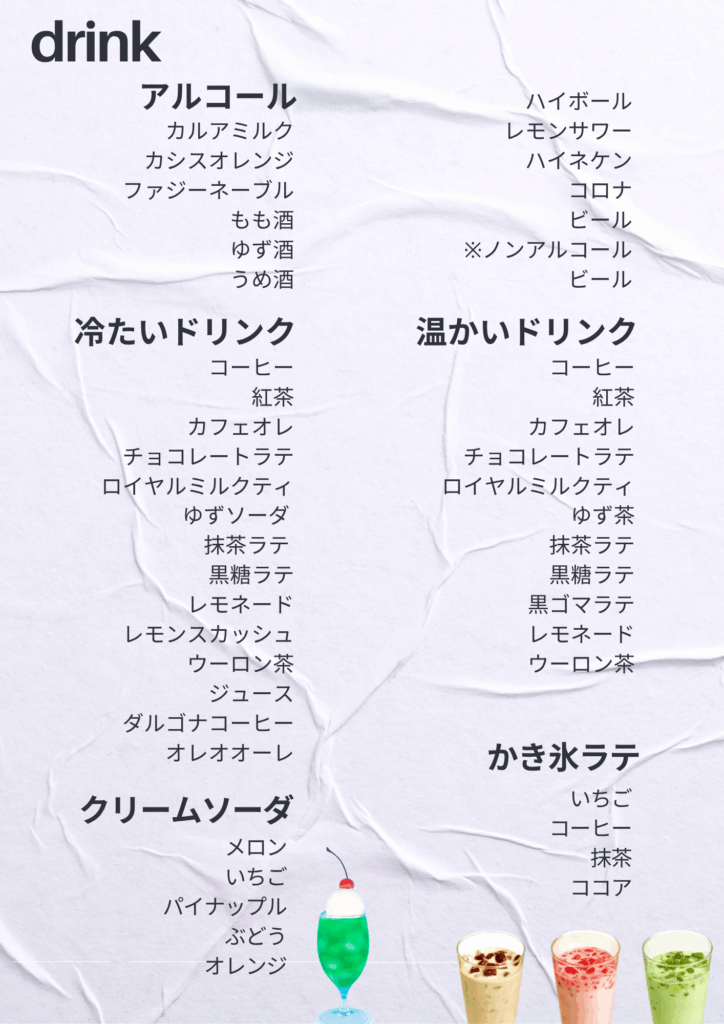 drink
アルコール
カルアミルク
カシスオレンジ
ファジーネーブル
もも酒
ゆず酒
うめ酒
ハイボール
レモンサワー
ハイネケン
コロナ
ビール
※ノンアルコール
ビール
冷たいドリンク
コーヒー
紅茶
カフェオレ
チョコレートラテ
ロイヤルミルクティ
ゆずソーダ
抹茶ラテ
黒糖ラテ
レモネード
レモンスカッシュ
ウーロン茶
ジュース
ダルゴナコーヒー
オレオオーレ
温かいドリンク
コーヒー
紅茶
カフェオレ
チョコレートラテ
ロイヤルミルクティ
ゆず茶
抹茶ラテ
黒糖ラテ
黒ゴマラテ
レモネード
ウーロン茶
クリームソーダ
メロン
いちご
パイナップル
ぶどう
オレンジ
かき氷ラテ
いちご
コーヒー
抹茶
ココア